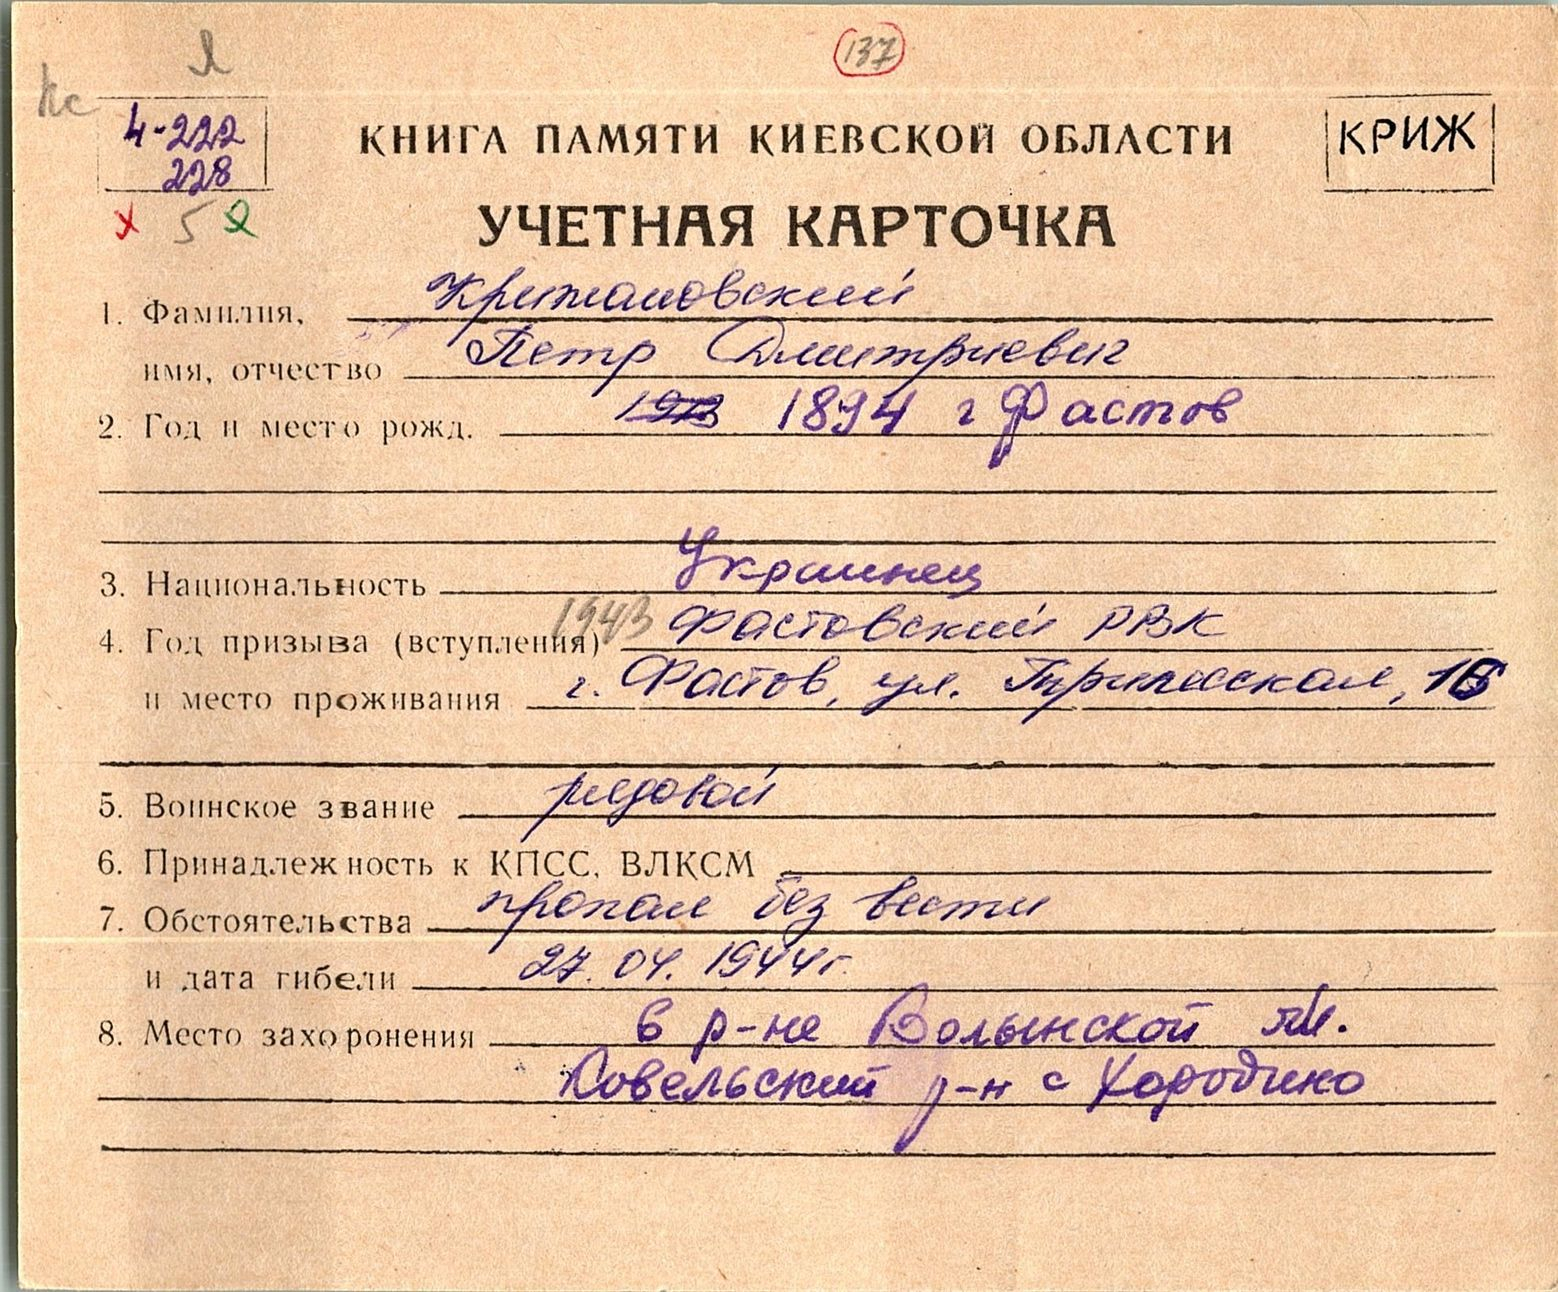 137
Кс
4-222
228
5
КНИГА ПАМЯТИ КИЕВСКОЙ ОБЛАСТИ
КРИЖ
УЧЕТНАЯ КАРТОЧКА
1. Фамилия, Крижановский
имя, отчество Петр Дмитриевич
2. Год и место рожд. 1894 г Фастов
3. Национальность Украинец
4. Год призыва (вступления) 1943 Фастовский РВК
и место проживания г. Фастов, ул. Трилесская, 16
5. Воинское звание рядовой
6. Принадлежность к КПСС, ВЛКСМ
7. Обстоятельства пропал без вести
и дата гибели 27.04.1944г.
8. Место захоронения в р-не Волынской
Ковельский р-н с Хородино